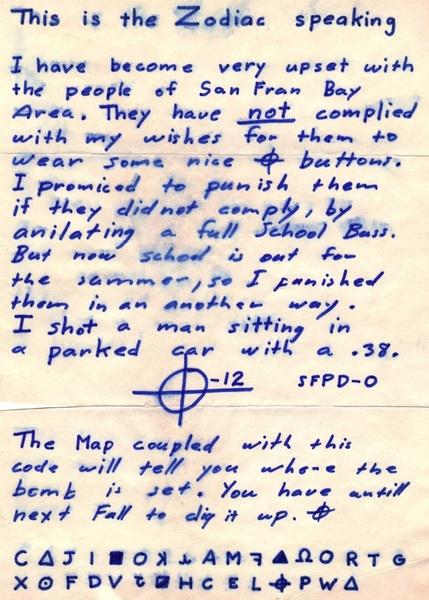 This is the Zodiac speaking
I have become very upset with
the people of San Fran Bay
Area. They have not complied
with my wishes for them to
wear some nice ⌖ buttons.
I promiced to punish them
if they did not comply, by
anilating a full School Buss.
But now school is out for
the summer, so I punished
them in an another way.
I shot a man sitting in
a parked car with a .38.
⌖-12 SFPD-0
The Map coupled with this
code will tell you where the
bomb is set. You have untill
next Fall to dig it up. ⌖
C Δ J I ■ O ʞ ⅄ A M ꟻ ▲ Ω O R T G
X ⊙ F D V ⊂ ■ H C E L ⌖ P W Δ